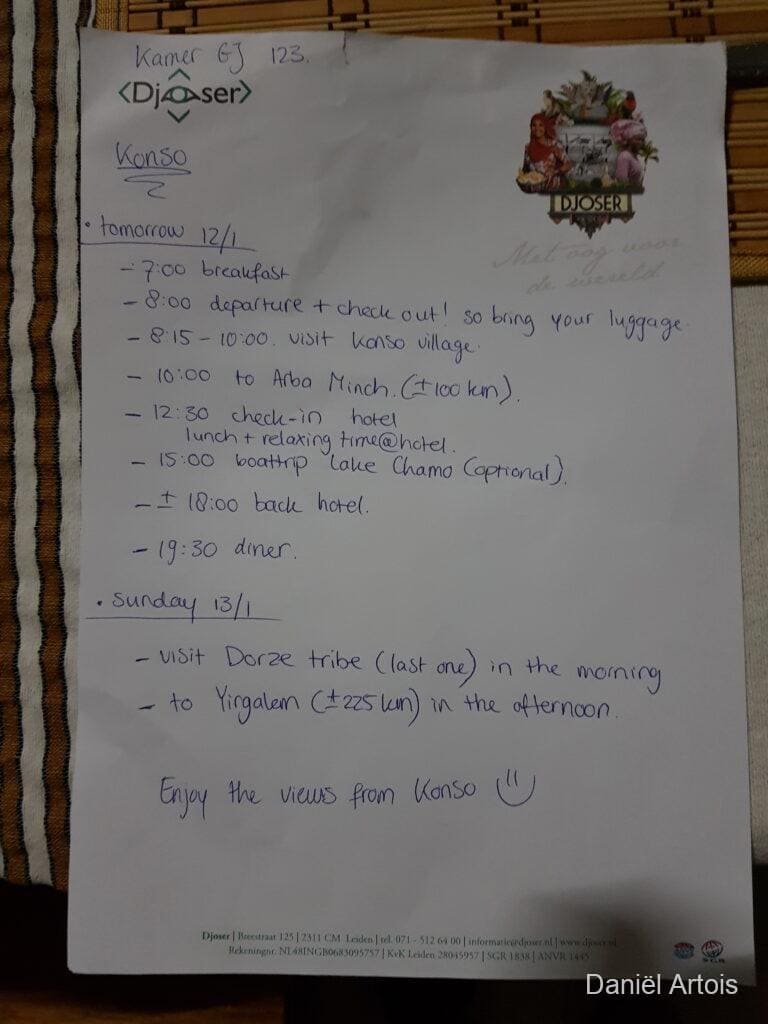 Kamer GJ 123.
Djoser
Konso
DJOSER
Met oog voor
de wereld
• tomorrow 12/1
- 7:00 breakfast
- 8:00 departure + check out! so bring your luggage.
- 8:15 - 10:00. visit Konso village.
- 10:00 to Arba Minch. (±100 km).
- 12:30 check-in hotel
lunch + relaxing time@hotel.
- 15:00 boattrip Lake Chamo (optional).
- ± 18:00 back hotel.
- 19:30 diner.
• sunday 13/1
- visit Dorze tribe (last one) in the morning
- to Yirgalem (±225 km) in the afternoon.
Enjoy the views from Konso
Djoser | Breestraat 125 | 2311 CM Leiden | tel. 071 - 512 64 00 | informatie@djoser.nl | www.djoser.nl
Rekeningnr. NL48INGB0683095757 | KvK Leiden 28045957 | SGR 1838 | ANVR 1445
SGR
Daniël Artois